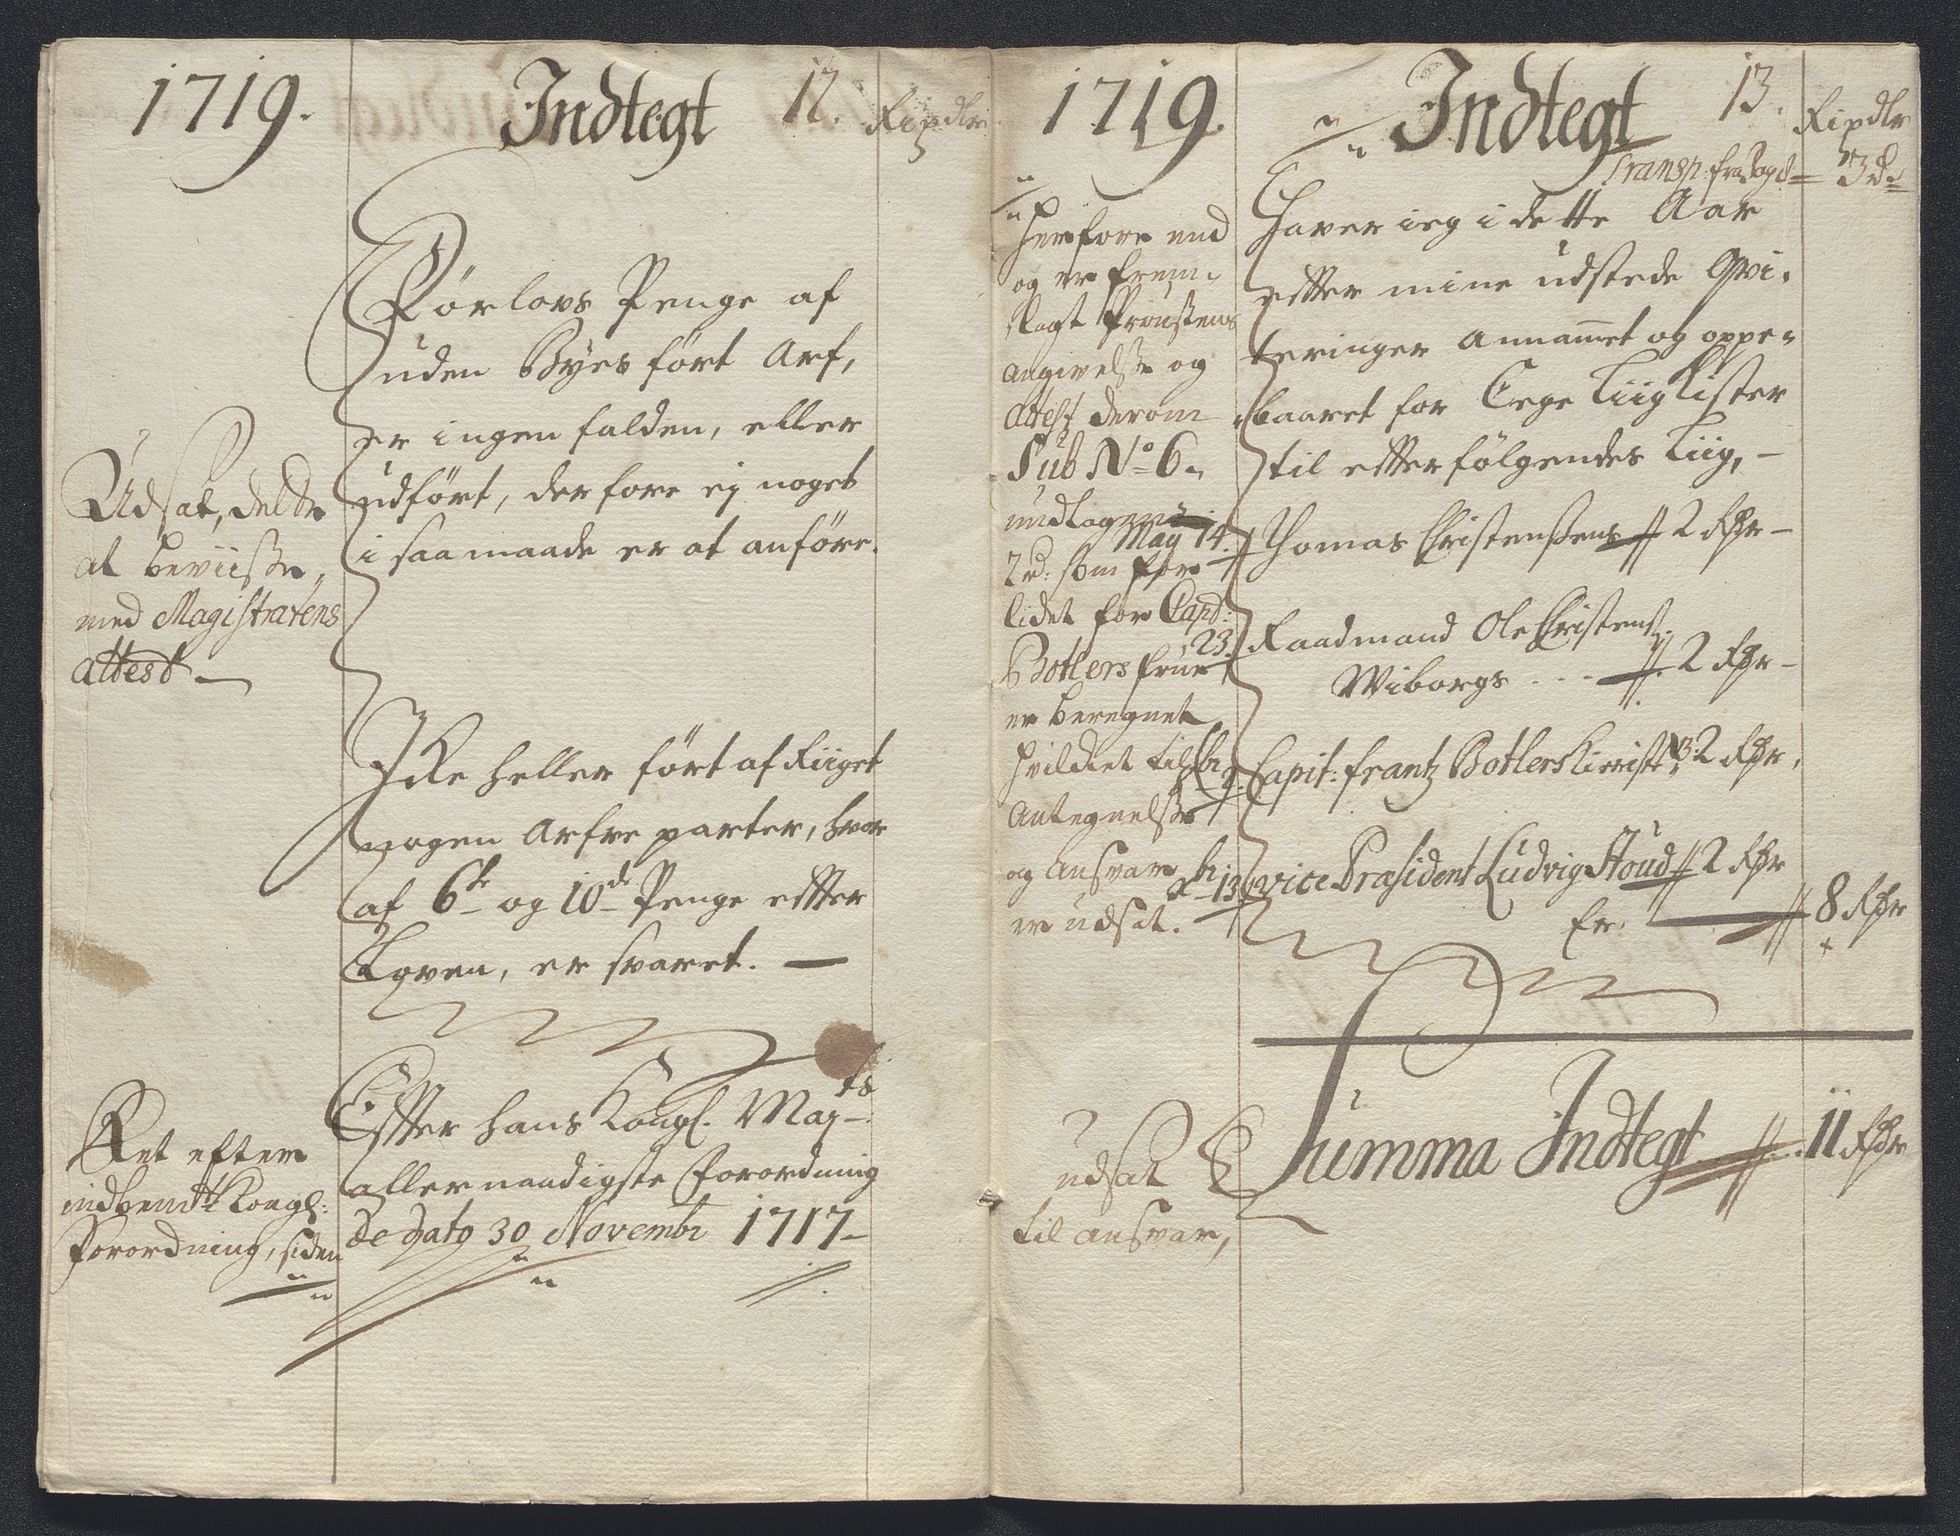 1719. Indtegt 12. Rixdlr
Förlovs Penge af
uden Byes fört Arf,
er ingen falden, eller
udfört, derfore ej noget
i saa maade er at anföre.
Udsat, dette
at beviisse
med Magistratens
attest
Icke heller fört af Riiget
nogen Arfve parter, hvor
af 6te og 10de Penge efter
Loven, er svaret.
Effter hans Kongl. Majts
allernaadigste Forordning
de dato 30 Novembr 1717
Ret efter
indbemte Kongl:
Forordning, siden
1719. Indtegt 13. Rixdlr
Transp: fra 3d
Herfore end
og er frem
lagt Proustens
angivelse og
Attest derom
Sub No 6.
undtagen
2d: som for
lidet for Capt:
Botlers frue
er beregnet
hvilcket til
Antegnelse
og ansvar
er udsat.
Haver ieg i dette Aar
effter mine udstede Qvi-
teringer annammet og oppe-
baaret for Eege Liig Kister
til effterfölgendes Liig,
May 14. Thomas Christenssens 2 Rdr
23. Raadmand Ole Christens:
Wiborgs . . . 2 Rdr
9. Capit: Frantz Botlers 2 Rdr
13 vice Præsident Ludvig Stoud 2 Rdr
Er. 8 Rdr
udsat
til ansvar,
Summa Indtegt 11 Rdr